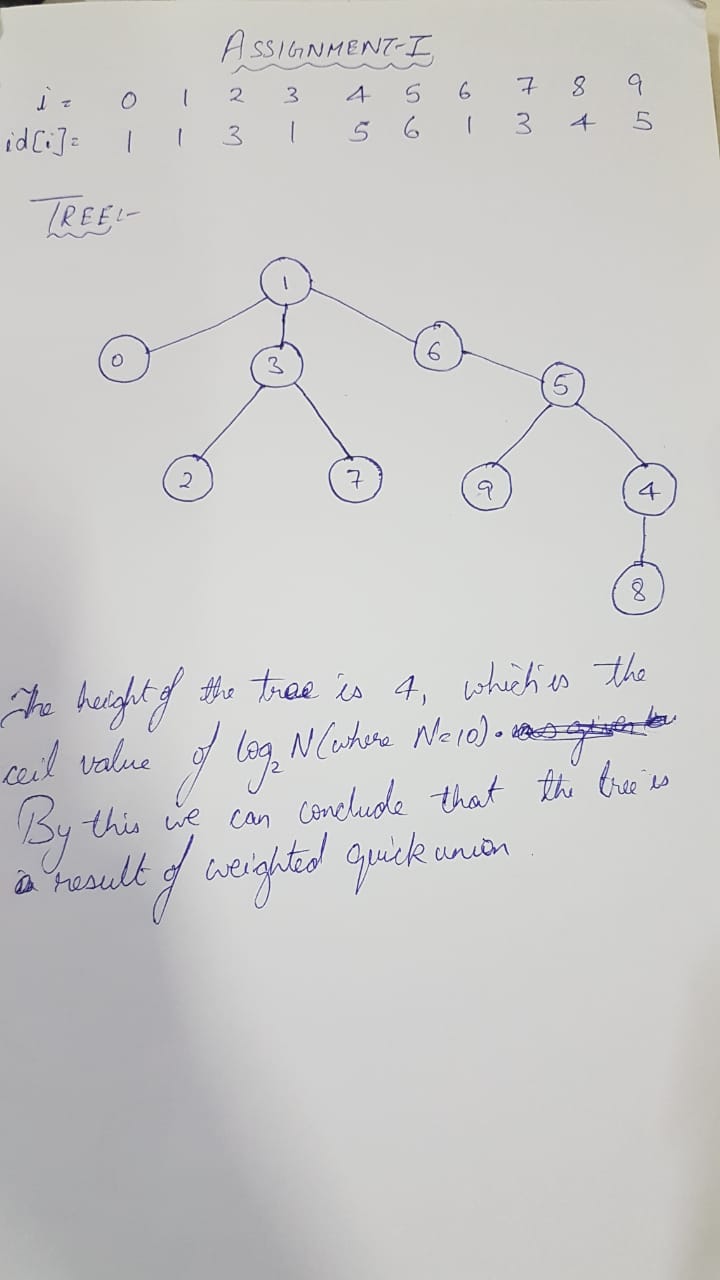 ASSIGNMENT-I
i = 0 1 2 3 4 5 6 7 8 9
id[i]= 1 1 3 1 5 6 1 3 4 5
TREE:-
1
0 3 6 5
2 7 9 4
8
The height of the tree is 4, which is the
ceil value of log₂ N (where N=10).
By this we can conclude that the tree is
a result of weighted quick union.